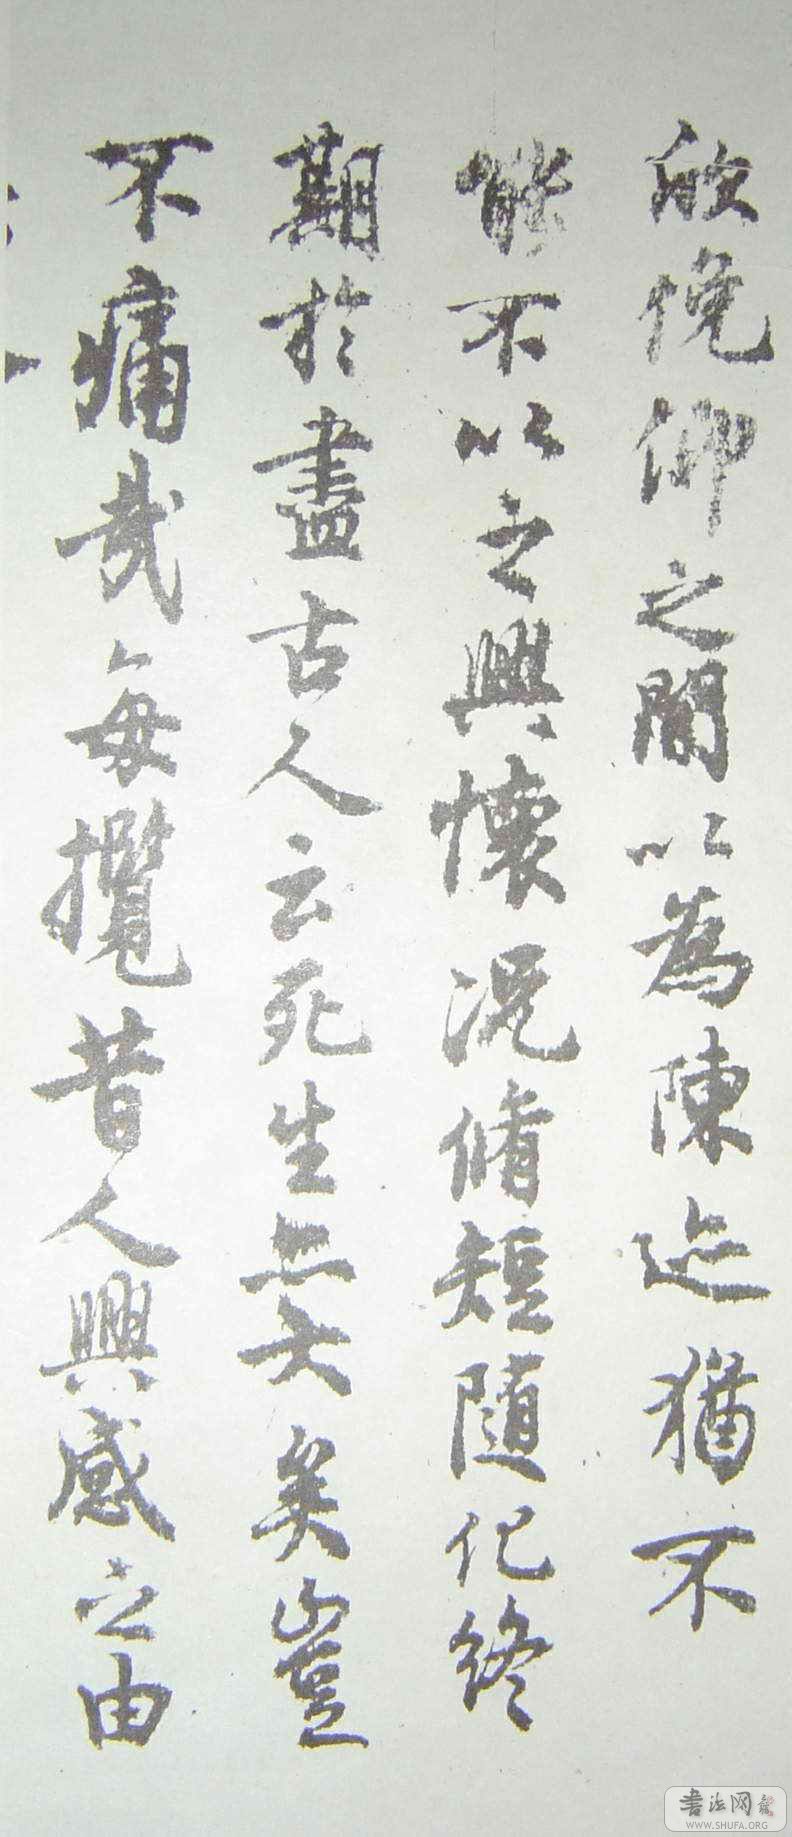 欣俛仰之閒以為陳迹猶不
能不以之興懷况脩短隨化終
期於盡古人云死生亦大矣豈
不痛哉每攬昔人興感之由
書法网
WWW.SHUFA.ORG